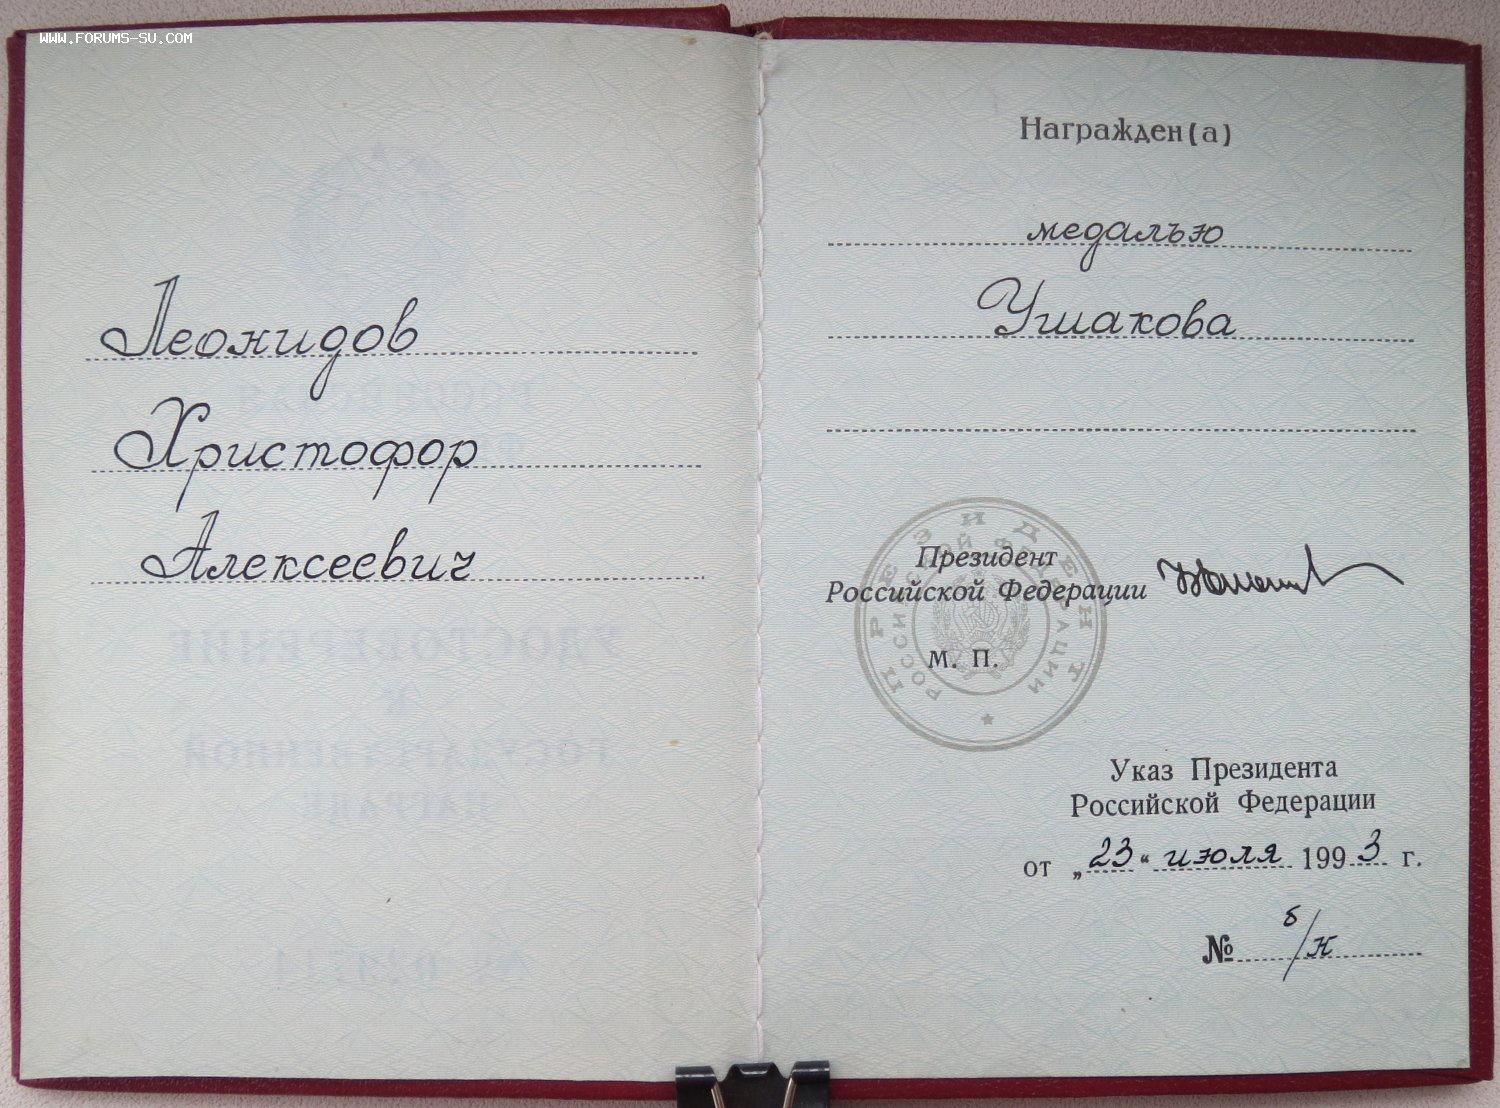 WWW.FORUMS-SU.COM
Леонидов
Христофор
Алексеевич
Награжден(а)
медалью
Ушакова
ПРЕЗИДЕНТ
РОССИЙСКОЙ ФЕДЕРАЦИИ
Президент
Российской Федерации
М. П.
Указ Президента
Российской Федерации
от „23“ июля 1993 г.
№ б/н